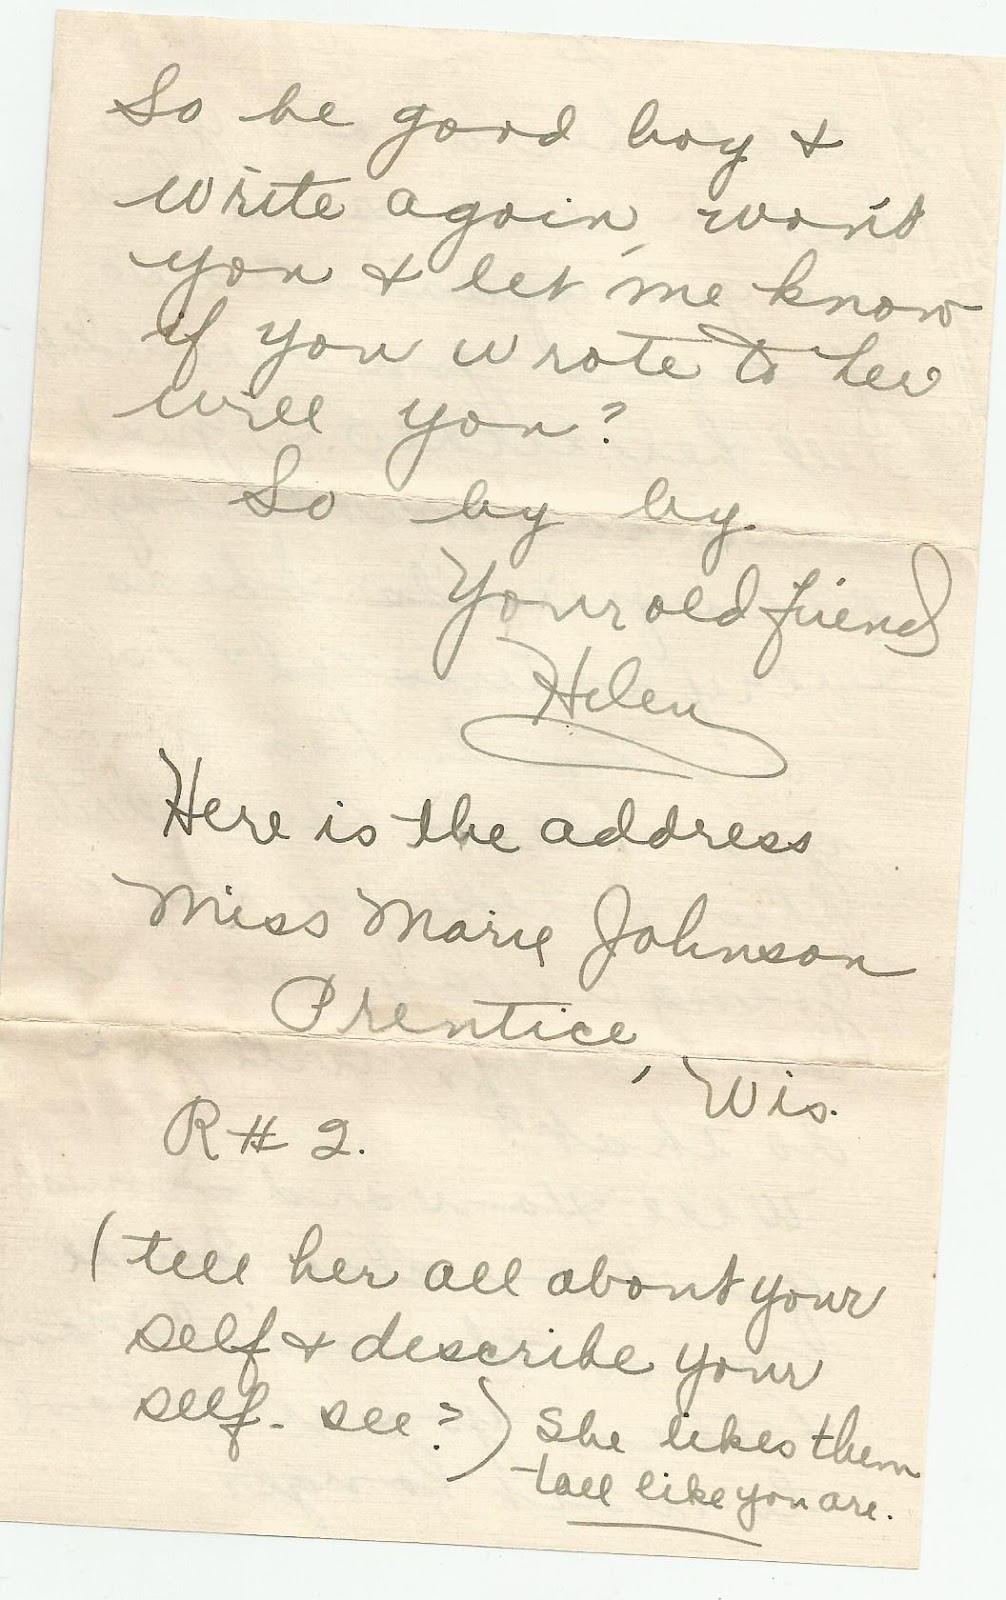 So be good boy &
write again, won't
you & let me know
if you wrote to her
will you?
So by by.
Your old friend
Helen
Here is the address
Miss Marie Johnson
Prentice, Wis.
R# 2.
(tell her all about your
self & describe your
self - see?) She likes them
tall like you are.